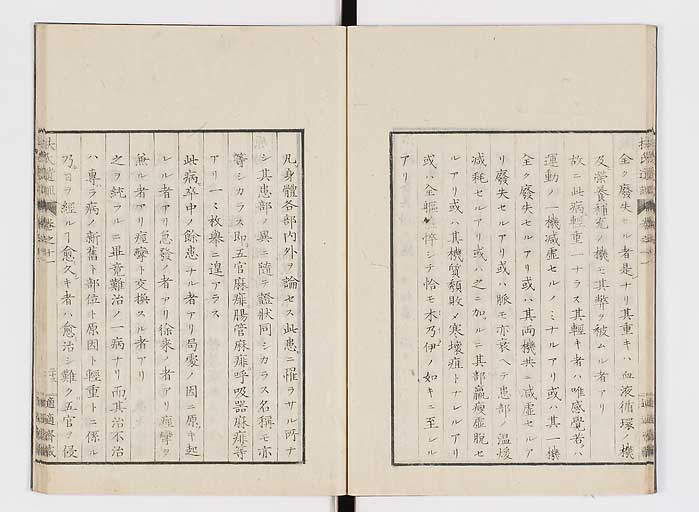 全ク廢失セル者是ナリ其重キハ血液循環ノ機
及榮養補充ノ機モ其弊ヲ被ムル者アリ
故ニ此病輕重一ナラス其輕キ者ハ唯感覺若ハ
運動ノ一機減虚セルノミナルアリ或ハ其一機
全ク廢失セルアリ或ハ其両機共ニ減虚セルア
リ廢失セルアリ或ハ脉モ亦衰ヘテ患部ノ温煖
減耗セルアリ或ハ之ニ加ルニ其部羸瘦虚脱セ
ルアリ或ハ其機質頽敗メ寒壊疽トナレルアリ
或ハ全軀憔悴シテ恰モ木乃伊ノ如キニ至レル
アリ
凡身體各部内外ヲ論セス此患ニ罹ラサル所ナ
シ其患部ノ異ニ隨ヲ證狀同シカラス名稱モ亦
等シカラス即五官麻痱腸管麻痱呼吸器麻痱等
アリ一々枚擧ニ遑アラス
此病卒中ノ餘患ナル者アリ局處ノ因ニ原キ起
レル者アリ急發ノ者アリ徐来ノ者アリ痙攣ヲ
無ル者アリ痙攣ト交換スル者アリ
之ヲ統フルニ畢竟難治ノ一病ナリ而其治不治
ハ專ラ病ノ新舊ト部位ト原因ト輕重トニ係ル
乃日ヲ經ルヿ愈久キ者ハ愈治シ難ク五官ヲ侵
扶氏遺訓 卷之十一
適適齋藏